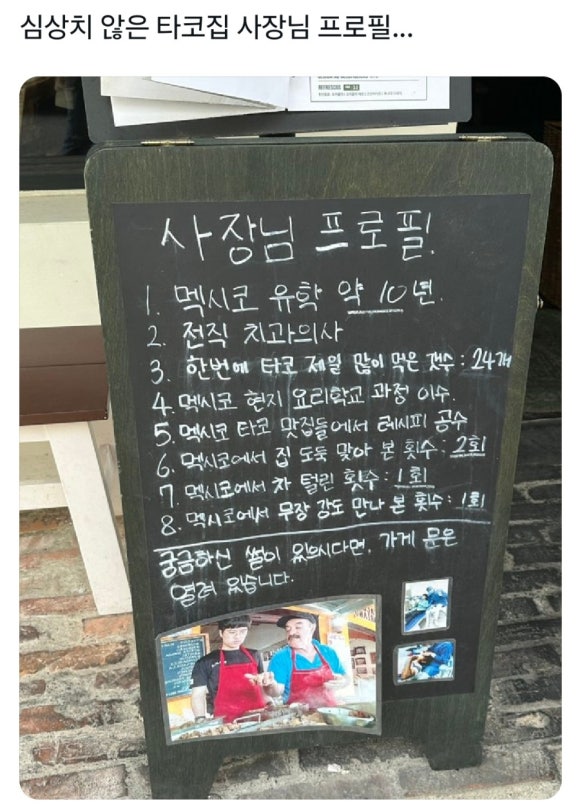 심상치 않은 타코집 사장님 프로필...
사장님 프로필.
1. 멕시코 유학 약 10년.
2. 전직 치과의사
3. 한번에 타코 제일 많이 먹은 갯수 : 24개
4. 멕시코 현지 요리학교 과정 이수.
5. 멕시코 타코 맛집들에서 레시피 공수
6. 멕시코에서 집 도둑 맞아 본 횟수 : 2회
7. 멕시코에서 차 털린 횟수 : 1회
8. 멕시코에서 무장 강도 만나 본 횟수 : 1회
궁금하신 썰이 있으시다면, 가게 문은
열려 있습니다.